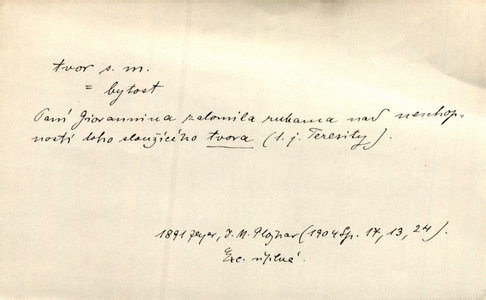 tvor s. m.
= bytost
Paní Giovannina zalomila rukama nad neschop-
ností toho sloužícího tvora (t. j. Teresity).
1891 Zeyer, J. M. Plojhar (1904 Sp. 17, 13, 24).
Exc. úplná.